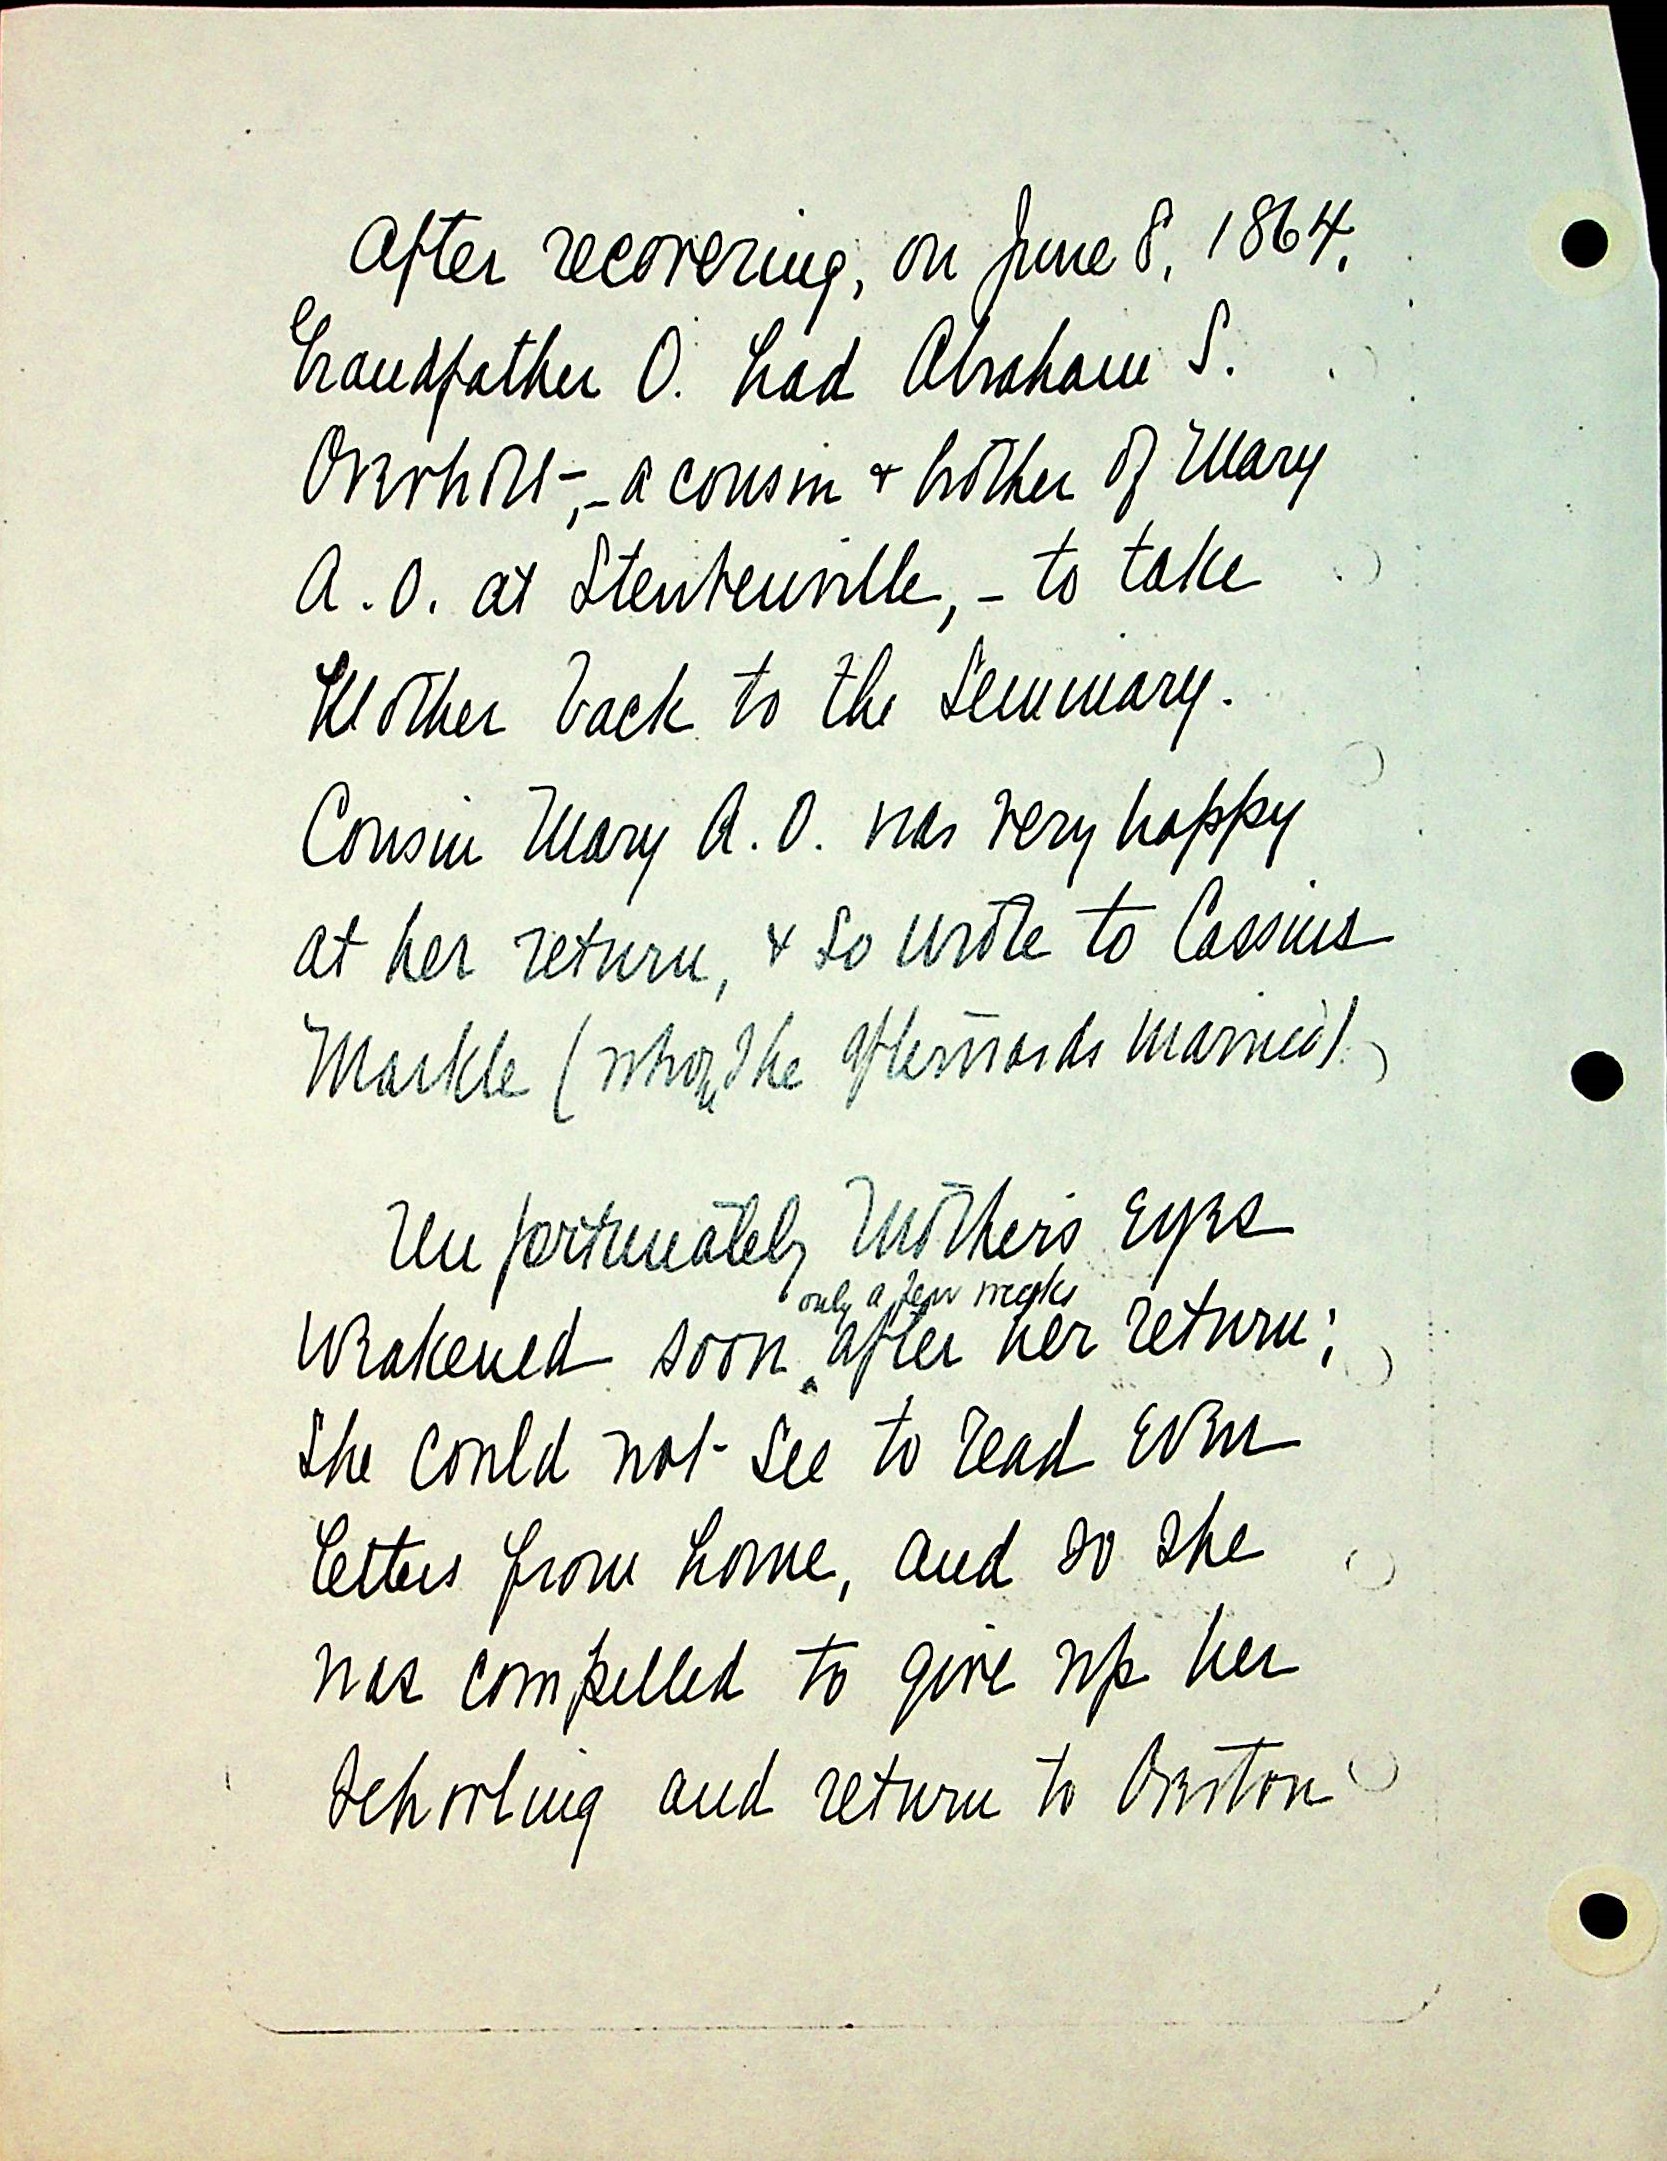 After recovering, on June 8, 1864,
Grandfather O. had Abraham S.
Overholt, - a cousin + brother of Mary
A. O. at Steubenville, - to take
Mother back to the Seminary.
Cousin Mary A. O. was very happy
at her return, + so wrote to Cassius
Markle (whom she afterwards married).
Unfortunately Mother's eyes
only a few weeks
weakened soon after her return;
she could not see to read even
letters from home, and so she
was compelled to give up her
schooling and return to Overton